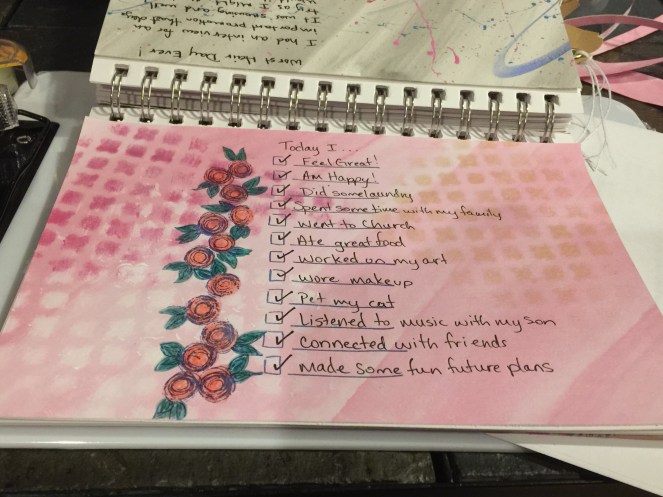 Worst Hair Day Ever!
I had an interview for an
important promotion that day.
It was snowing and
try as I might
Today I...
Feel Great!
Am Happy!
Did some laundry
Spent some time with my family
Went to Church
Ate great food
Worked on my art
Wore makeup
Pet my cat
Listened to music with my son
Connected with friends
Made some fun future plans